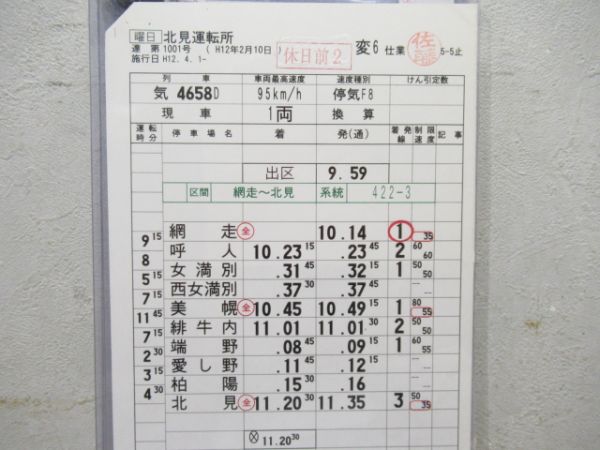 曜日 北見運転所
達 第 1001号 ( H12年2月10日 ) 休日前2 変6 仕業 佐藤
施行日 H12. 4. 1- 5-5止
列車 車両最高速度 速度種別 けん引定数
気 4658D 95km/h 停気F8
現車 1両 換算
運転時分 停車場名 着 発(通) 着発線 制限速度 記事
出区 9.59
区間 網走～北見 系統 422-3
網走 全 10.14 1 35
9 15
呼人 10.23 15 .23 45 2 60 60
8
女満別 .31 45 .32 15 1 50 50
5 15
西女満別 .37 30 .37 45
7 15
美幌 全 10.45 10.49 15 1 80 55
11 45
緋牛内 11.01 11.01 30 2 50 50
7 15
端野 .08 45 .09 15 1 60 55
2 30
愛し野 .11 45 .12 15
3 15
柏陽 .15 30 .16
4 30
北見 全 11.20 30 11.35 3 50 35
11.20 30